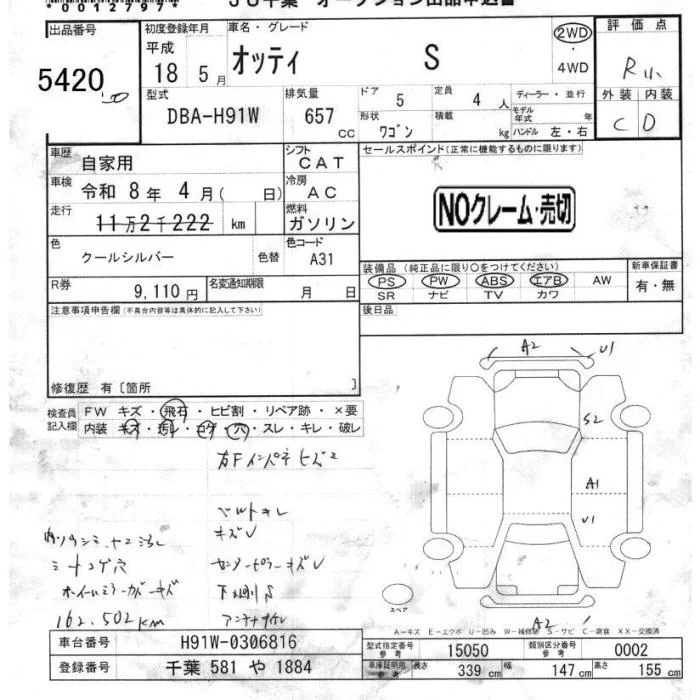 *00127977*
JU千葉 オークション出品申込書
出品番号 5420
初度登録年月 平成 18 5月
車名・グレード オッティ S
2WD・4WD
評価点 R
型式 DBA-H91W
排気量 657 CC
ドア 5
形状 ワゴン
定員 4人
積載 kg
ディーラー・並行
モデル年式 年
ハンドル 左・右
外装 内装
C D
車歴 自家用
シフト CAT
セールスポイント(正常に機能するものに限ります)
車検 令和 8年 4月( 日)
冷房 AC
NOクレーム・売切
走行 11万2千222 km
燃料 ガソリン
色 クールシルバー 色替
色コード A31
装備品 (純正品に限り○をつけてください)
PS PW ABS エアB AW
SR ナビ TV カワ
新車保証書 有・無
R券 9,110円
名変通知期限 月 日
後日品
注意事項申告欄(不具合内容等は具体的に記入して下さい)
修復歴 有〔箇所 〕
検査員記入欄
FW キズ・飛石・ヒビ割・リペア跡・×要
内装 キズ・汚れ・コゲ・穴・スレ・キレ・破レ
A2 U1
S2
A1
U1
A2
ベルトキレ
キズU
センターピラーキズU
アンテナ
シートコゲ穴
162,502KM
スペア
A-キズ E-エクボ U-凹み W-補修跡 S-サビ C-腐食 XX-交換済
車台番号 H91W-0306816
登録番号 千葉 581 や 1884
型式指定番号 参考 15050
類別区分番号 参考 0002
車庫証明用 参考 長さ 339 cm 幅 147 cm 高さ 155 cm